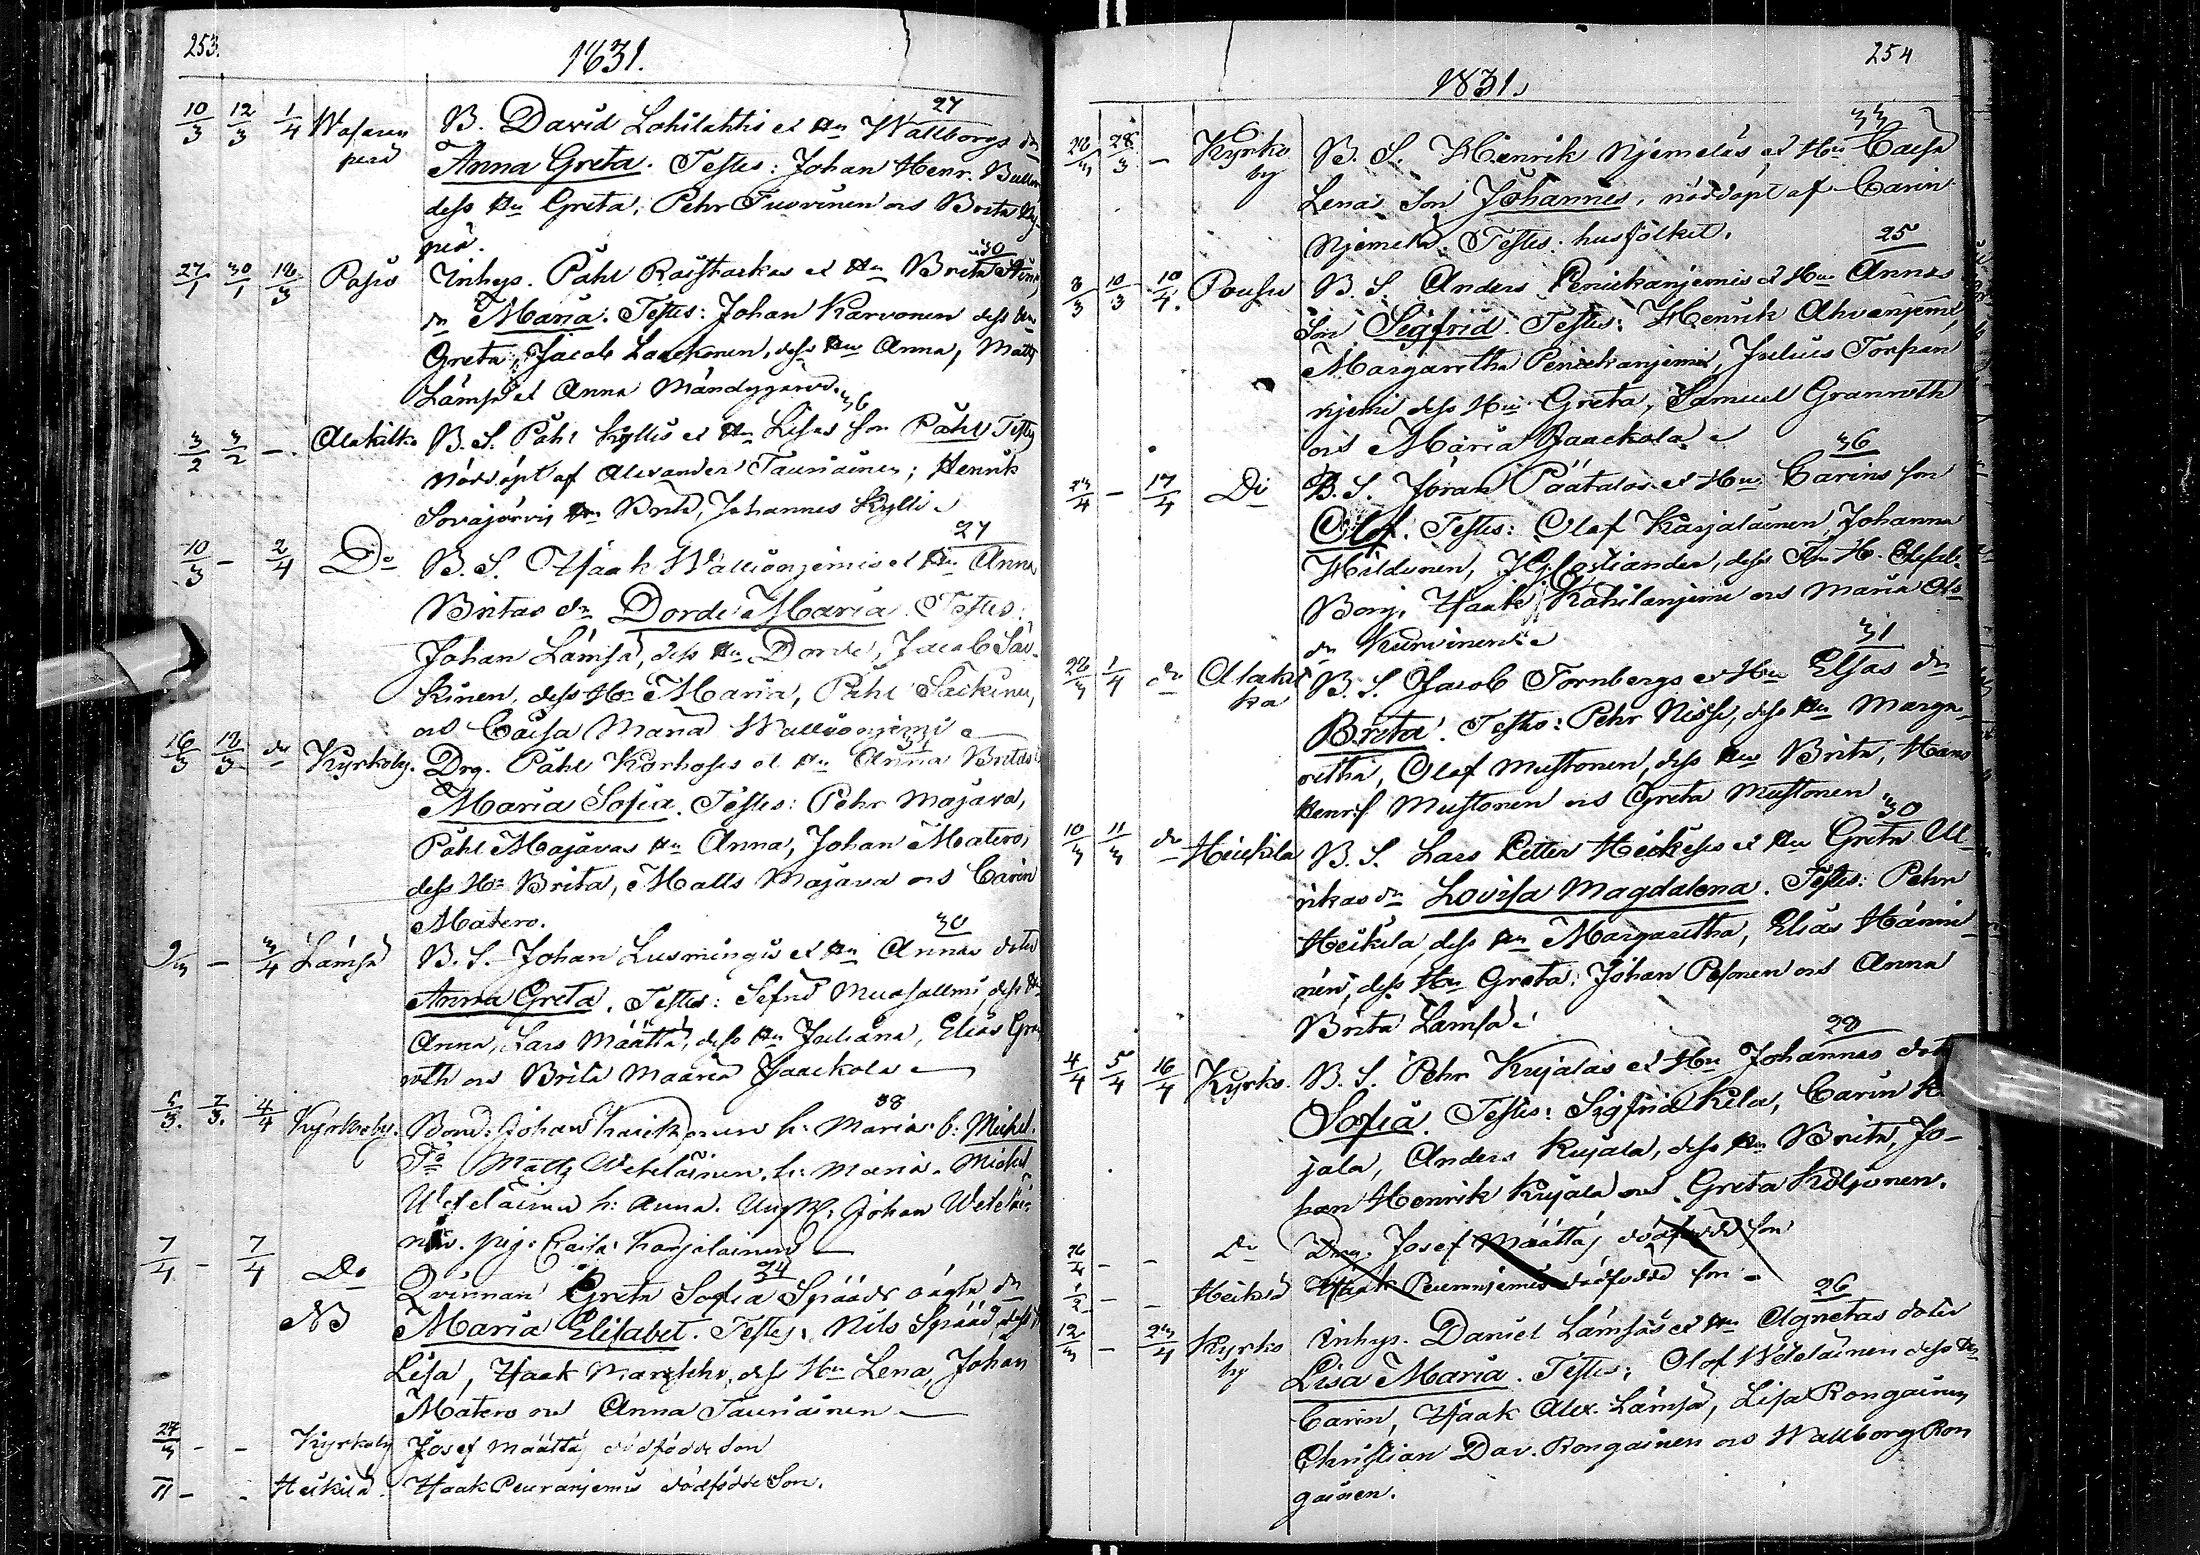 253.
1831.
10/3 12/3 1/4 B. David Lohilahtis et Hu Wallborgs dr 27
Anna Greta. Testes: Johan Henr.
dess Hu Greta; Pehr Tuorinen os Brita
perä.
27/1 30/1 Paljo Inhys. Påhl Raistackas et Hu Brita 30
dr Maria. Testes: Johan Karvonen dess Hu
Greta, Jacob Laackonen, dess Hu Anna, Matts
Lämsä et Anna
3/2 3/2 - Alakitka B. S. Påhl Kyllis et Hu Lisas son Påhl Testes 36
nöddöpt af Alexander Tauriainen; Henrik
Sovajärvi, Hu Brita, Johannes Kylli
10/3 - 2/4 Do B. S. Isaak Wallionjemis et Hu Anna 27
Britas dr Dorde Maria. Testes:
Johan Lämsä, dess Hu Dorde, Jacob Säc-
kinen, dess Hu Maria, Påhl Säckinen,
os Caisa Maria Wallionjemi
16/3 do Kyrkoby. Drg. Påhl Korhoses et Hu Anna Britas 31
Maria Sofia. Testes: Pehr Majava,
Påhl Majavas Hu Anna, Johan Matero,
dess Hu Brita, Matts Majava os Carin
Matero.
9/3 - 3/4 Lämsä B. S. Johan Lusmingis et Hu Annas doter 30
Anna Greta. Testes: Sefrid Muosallmi, dess Hu
Anna, Lars Määttä, dess Hu Juliana, Elias Gran
roth os Brita Maaria Jaackola
5/3. 7/3. 4/4 Kyrkoby. Bond: Johan Karikonen h: Maria: b: Michel. 38
Matts Weteläinen. h: Maria. Michel
Wetelainen h: Anna. Johan Wetelai-
nen. pig: Caisa: Karjalainen
7/4 - 7/4 Do Qvinnan Greta Sofia Späädr oägta dr 24
NB Maria Elisabet. Testes: Nils Spääd, dess H
Lisa, Isaak dess Hu Lena, Johan
Matero os Anna Tauriainen
27/3 - - Kyrkoby Josef Määttäs dödfödde son
- - Heikilä. Isaak Peuranjemis dödfödde Son.
254
1831.
28/3 - Kyrko by B. S. Henrik Njemeläs et Hu Caisa 33
Lenas son Johannes, nöddöpt af Carin
Njemelä. Testes: husfolket.
8/3 10/3 10/4. Poussu B. S. Anders Penickanjemis et Hu Annas 25
son Sigfrid. Testes: Henrik Ahvenjemi,
Margaretha Penickanjemi, Julius Torfvan
njemi dess Hu Greta, Samuel Granroth
os Maria Jaackola
- 17/4 Do B. S. Jöran Päätalos et Hu Carins son 36
Olof. Testes: Olof Karjalainen Johanna
Hildunen, dess Fru H. Elisab.
Borg, Isaak Kohilanjemi os Maria Ols
dr Kurvinen
1/4 do Alakit ka B. S. Jacob Tornbergs et Hu Elsas dr 31
Brita. Testes: Pehr Nissi, dess Hu Marga-
retha, Olof Mustonen, dess Hu Brita, Hans
Henr: Mustonen os Greta Mustonen
10/3 11/3 do Heickila B. S. Lars Petter Heickeses et Hu Greta Ul- 30
rikas dr Lovisa Magdalena. Testes: Pehr
Heikila, dess Hu Margaretha, Elias Hänni-
nen, dess Hu Greta: Johan Pesonen os Anna
Brita Lämsä
4/4 5/4 16/4 Kyrko. B. S. Pehr Kujalas et Hu Johannas doter 29
Sofia. Testes: Sigfrid Kela, Carin K
jala, Anders Kujala, dess Hu Brita, Jo-
han Henrik Kujala os Greta Koljonen.
- - Do Drg. Josef Määttäs dödfödd son
- - Heikilä Isaak Peuranjemis dödfödd son
12/3 - 24/4 Kyrko by Inhys. Daniel Lämsäs et Hu Agnetas doter 26
Lisa Maria. Testes: Olof Wetelainen dess Hu
Carin, Isaak Alex. Lämsä, Lisa Rongainen
Christian Dav. Rongainen os Wallborg Ron
gainen.